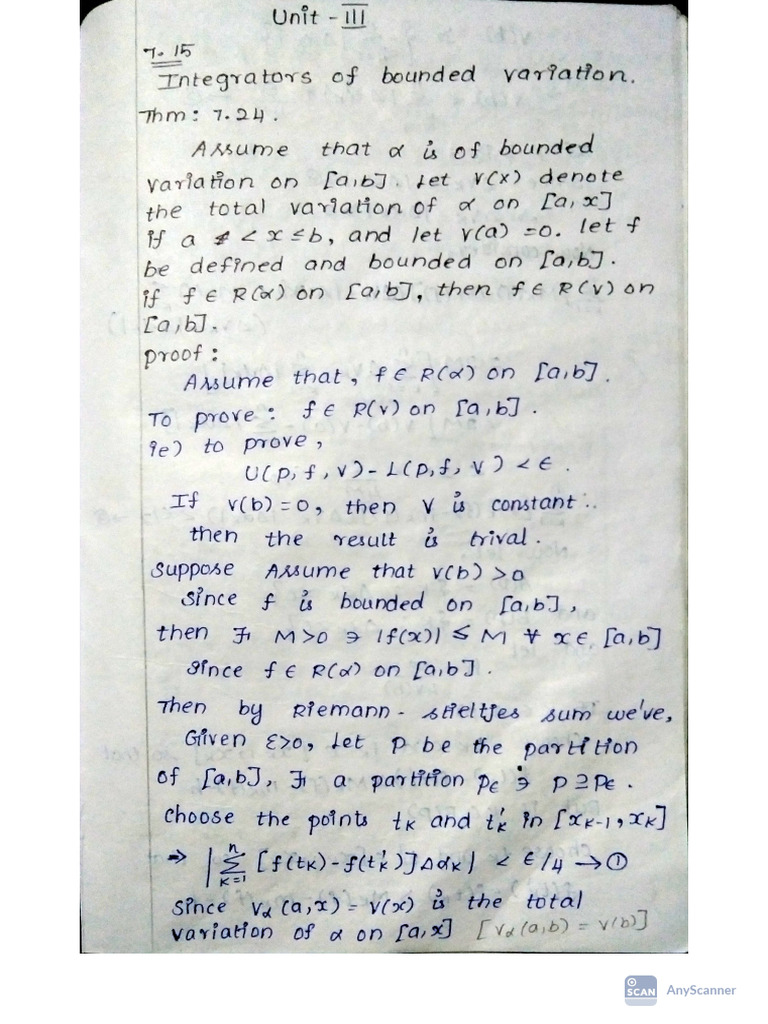 Unit - III
7.15
Integrators of bounded variation.
Thm: 7.24.
Assume that α is of bounded
variation on [a,b]. Let V(x) denote
the total variation of α on [a, x]
if a < x ≤ b, and let V(a) = 0. let f
be defined and bounded on [a,b].
if f ∈ R(α) on [a,b], then f ∈ R(V) on
[a,b].
proof:
Assume that, f ∈ R(α) on [a,b].
To prove: f ∈ R(V) on [a,b].
ie) to prove,
U(P, f, V) - L(P, f, V) < ϵ.
If V(b) = 0, then V is constant.
then the result is trival.
Suppose Assume that V(b) > 0
Since f is bounded on [a,b],
then ∃ M>0 ∋ |f(x)| ≤ M ∀ x ∈ [a,b]
Since f ∈ R(α) on [a,b].
Then by Riemann - Stieltjes sum we've,
Given ε>0, Let P be the partition
of [a,b], ∃ a partition Pϵ ∋ P ⊇ Pϵ.
choose the points tₖ and tₖ' in [xₖ₋₁, xₖ]
⇒ |∑ₖ₌₁ⁿ [f(tₖ) - f(tₖ')] Δαₖ| < ϵ/4 → ①
Since Vα(a,x) = V(x) is the total
variation of α on [a,x] [Vα(a,b) = V(b)]
SCAN AnyScanner